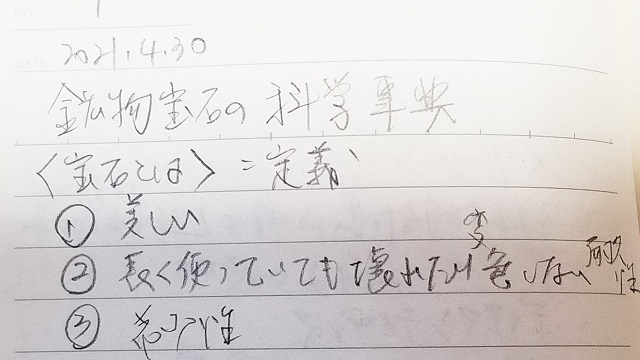 2021.4.30
鉱物宝石の科学事典
〈宝石とは〉=定義
① 美しい
② 長く使っていても壊れたり変色しない 耐久性
③ 希少性